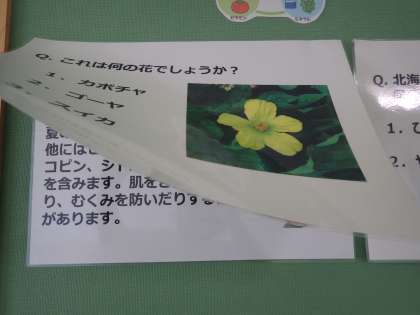 ビタミン
ミネラル
Q. これは何の花でしょうか？
1. カボチャ
2. ゴーヤ
3. スイカ
夏の
他には
コピン、シト
を含みます。肌を
り、むくみを防いだりする
があります。
Q. 北海
1. ひ
2.